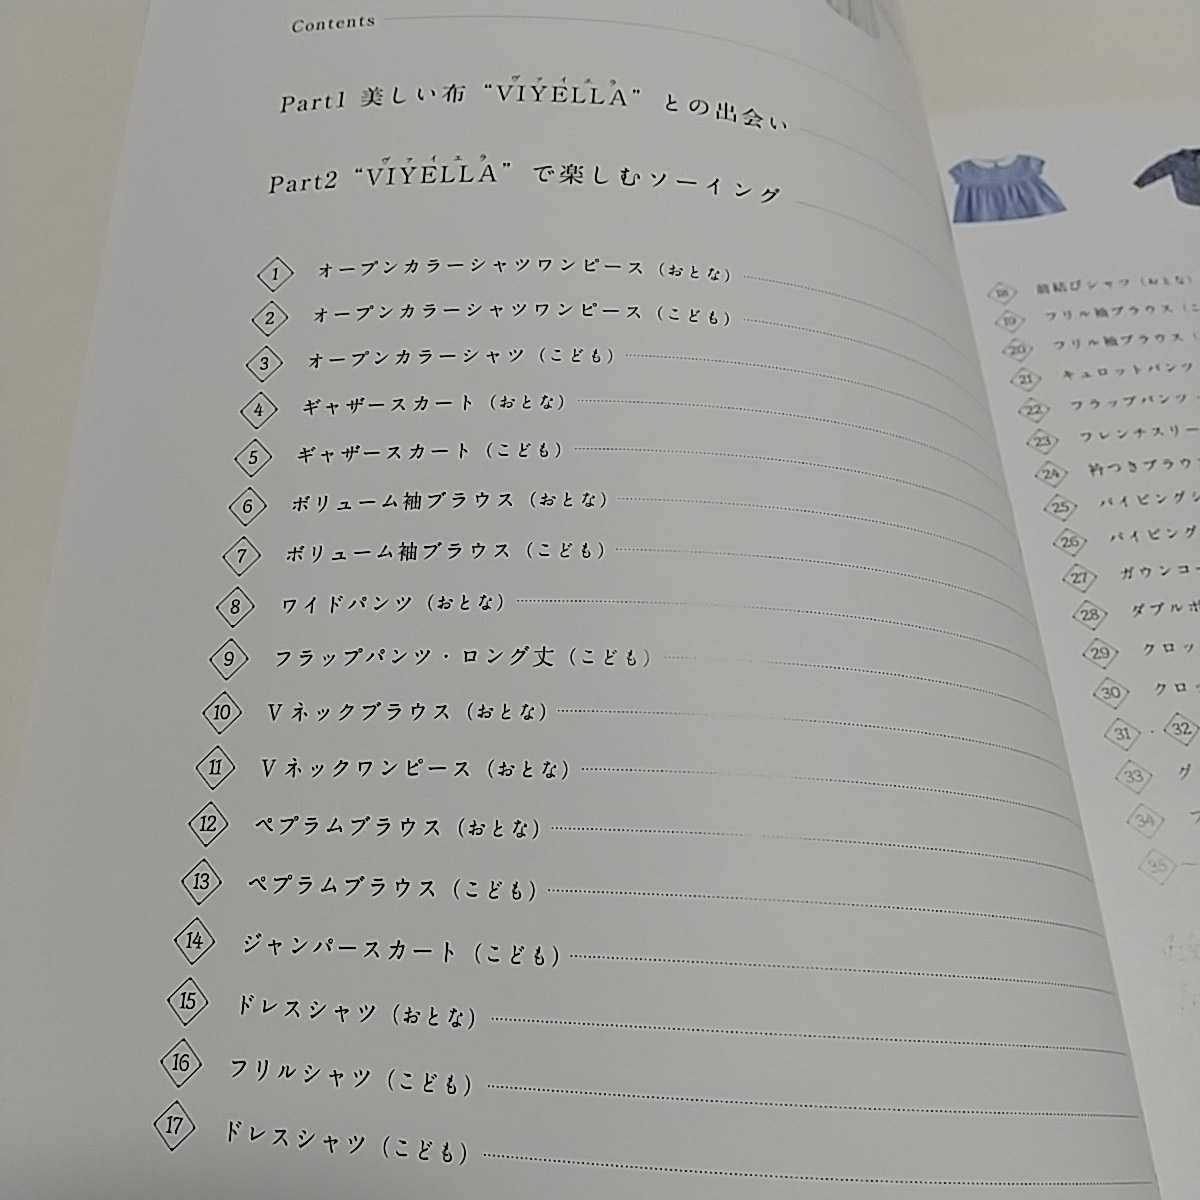 Contents
Part1 美しい布 “VIYELLA” との出会い
ヴァイエラ
Part2 “VIYELLA” で楽しむソーイング
ヴァイエラ
1 オープンカラーシャツワンピース（おとな）
2 オープンカラーシャツワンピース（こども）
3 オープンカラーシャツ（こども）
4 ギャザースカート（おとな）
5 ギャザースカート（こども）
6 ボリューム袖ブラウス（おとな）
7 ボリューム袖ブラウス（こども）
8 ワイドパンツ（おとな）
9 フラップパンツ・ロング丈（こども）
10 Vネックブラウス（おとな）
11 Vネックワンピース（おとな）
12 ペプラムブラウス（おとな）
13 ペプラムブラウス（こども）
14 ジャンパースカート（こども）
15 ドレスシャツ（おとな）
16 フリルシャツ（こども）
17 ドレスシャツ（こども）
18 前結びシャツ（おとな）
19 フリル袖ブラウス（こ
20 フリル袖ブラウス（
21 キュロットパンツ
22 フラップパンツ・
23 フレンチスリー
24 衿つきブラウス
25 パイピングシ
26 パイピング
27 ガウンコー
28 ダブルボ
29 クロッ
30 クロッ
31・32
33 グ
34 フ
35